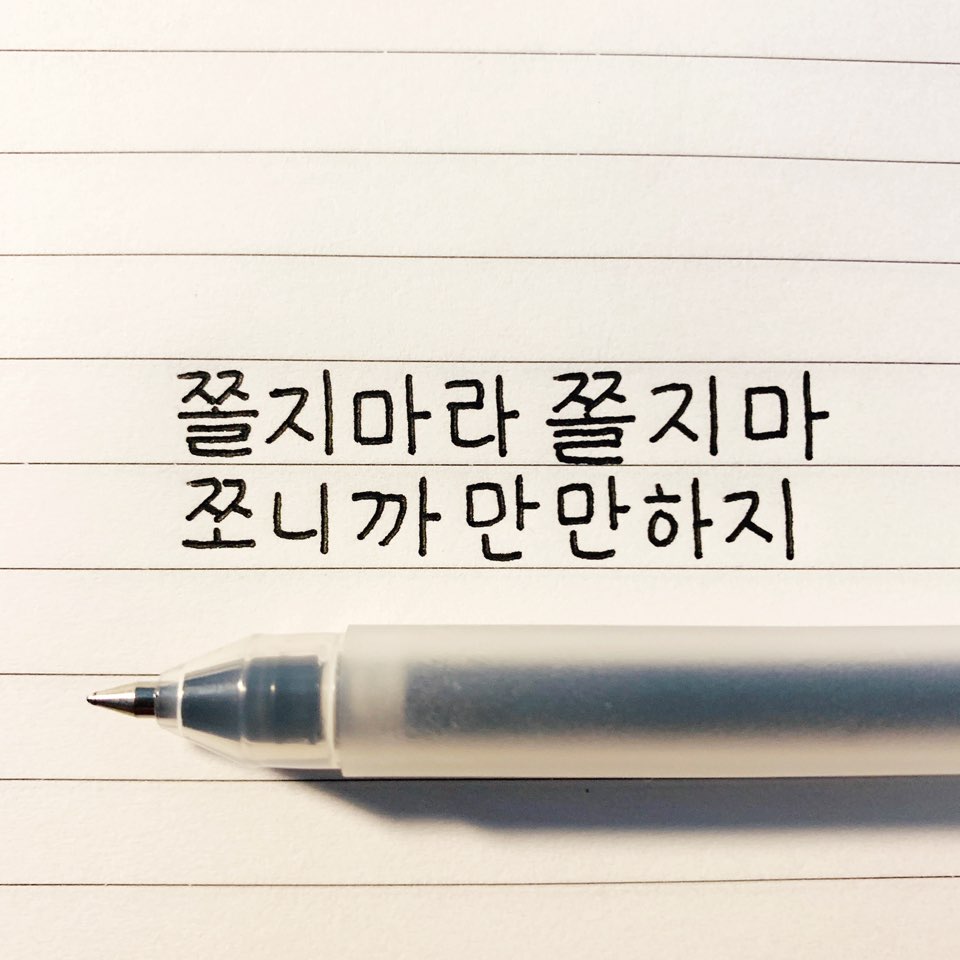 쫄지마라 쫄지마
쪼니까 만만하지